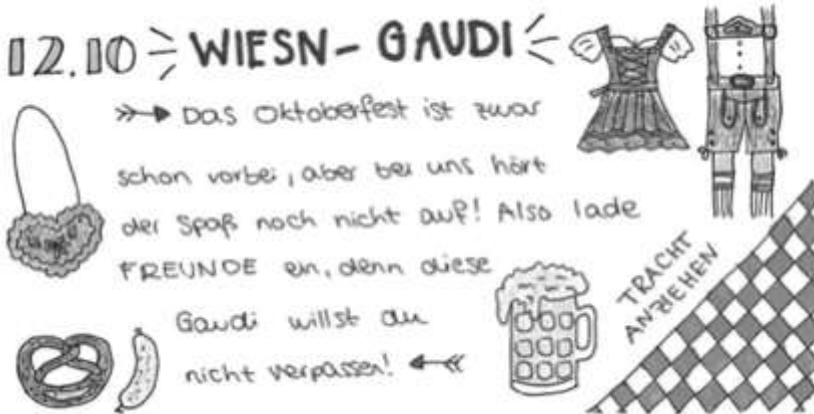 12.10 WIESN-GAUDI
Das Oktoberfest ist zwar
schon vorbei, aber bei uns hört
der Spaß noch nicht auf! Also lade
FREUNDE ein, denn diese
Gaudi willst du
nicht verpassen!
TRACHT
ANZIEHEN